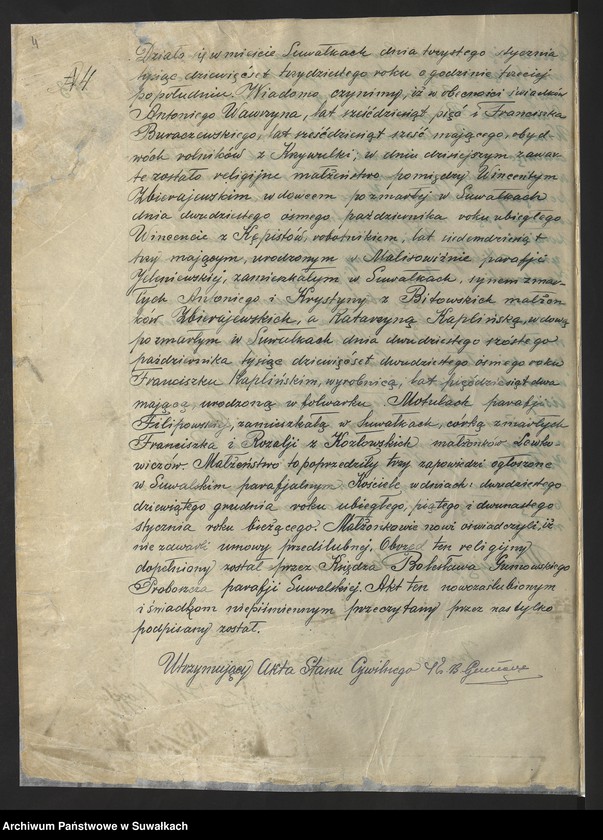 4
14
Działo się w mieście Suwałkach dnia trzystego stycznia
tysiąc dziewięćset trzydziestego roku o godzinie trzeciej
popołudniu. Wiadomo czynimy, iż w obecności świadków
Antoniego Wawrzyna, lat sześćdziesiąt pięć i Franciszka
Buraczewskiego, lat sześćdziesiąt sześć mającego, obyd-
wóch rolników z Krzywulki, w dniu dzisiejszym zawar-
te zostało religijne małżeństwo pomiędzy Wincentym
Zbierajewskim wdowcem po zmarłej w Suwałkach
dnia dwudziestego ósmego października roku ubiegłego
Wincencie z Kępistów, robotnikiem, lat siedemdziesiąt
trzy mającym, urodzonym w Malisowiźnie parafji
Jeleniewskiej, zamieszkałym w Suwałkach, synem zmar-
łych Antoniego i Krystyny z Bitowskich małżon-
ków Zbierajewskich, a Katarzyną Kaplińską, wdową
po zmarłym w Suwałkach dnia dwudziestego szóstego
października tysiąc dziewięćset dwudziestego ósmego roku
Franciszku Kaplińskim, wyrobnicą, lat pięćdziesiąt dwa
mającą urodzoną w folwarku Motulach parafji
Filipowskiej, zamieszkałą w Suwałkach, córką zmarłych
Franciszka i Rozalji z Kozłowskich małżonków Lewko-
wiczów. Małżeństwo to poprzedziły trzy zapowiedzi ogłoszone
w Suwalskim parafjalnym Kościele w dniach: dwudziestego
dziewiątego grudnia roku ubiegłego, piątego i dwunastego
stycznia roku bieżącego. Małżonkowie nowi oświadczyli, iż
nie zawarli umowy przedślubnej. Obrzęd ten religijny
dopełniony został przez Księdza Bolesława Gumowskiego
Proboszcza parafji Suwalskiej. Akt ten nowozaślubionym
i świadkom niepiśmiennym przeczytany przez nas tylko
podpisany został.
Utrzymujący Akta Stanu Cywilnego X. B. Gumow
Archiwum Państwowe w Suwałkach